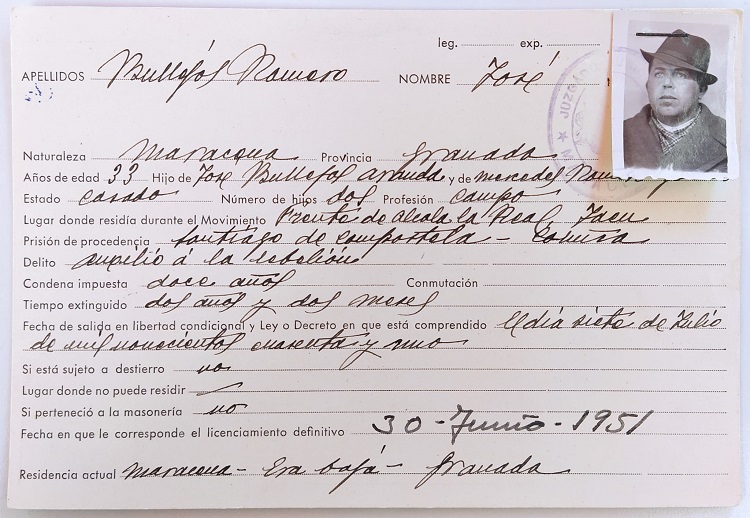 leg. exp.
APELLIDOS Bullejós Romero NOMBRE José
JUZG
Naturaleza Maracena Provincia Granada
Años de edad 33 Hijo de José Bullejos Aranda y de Mercedes
Estado casado Número de hijos dos Profesión campo
Lugar donde residía durante el Movimiento Frente de Alcala la Real Jaen
Prisión de procedencia Santiago de Compostela - Coruña
Delito Auxilio á la rebelión
Condena impuesta doce años Conmutación
Tiempo extinguido dos años y dos meses
Fecha de salida en libertad condicional y Ley o Decreto en que está comprendido El dia siete de Julio
de mil novecientos cuarenta y uno
Si está sujeto a destierro no
Lugar donde no puede residir
Si perteneció a la masonería no
Fecha en que le corresponde el licenciamiento definitivo 30-Junio-1951
Residencia actual Maracena - Era baja - Granada